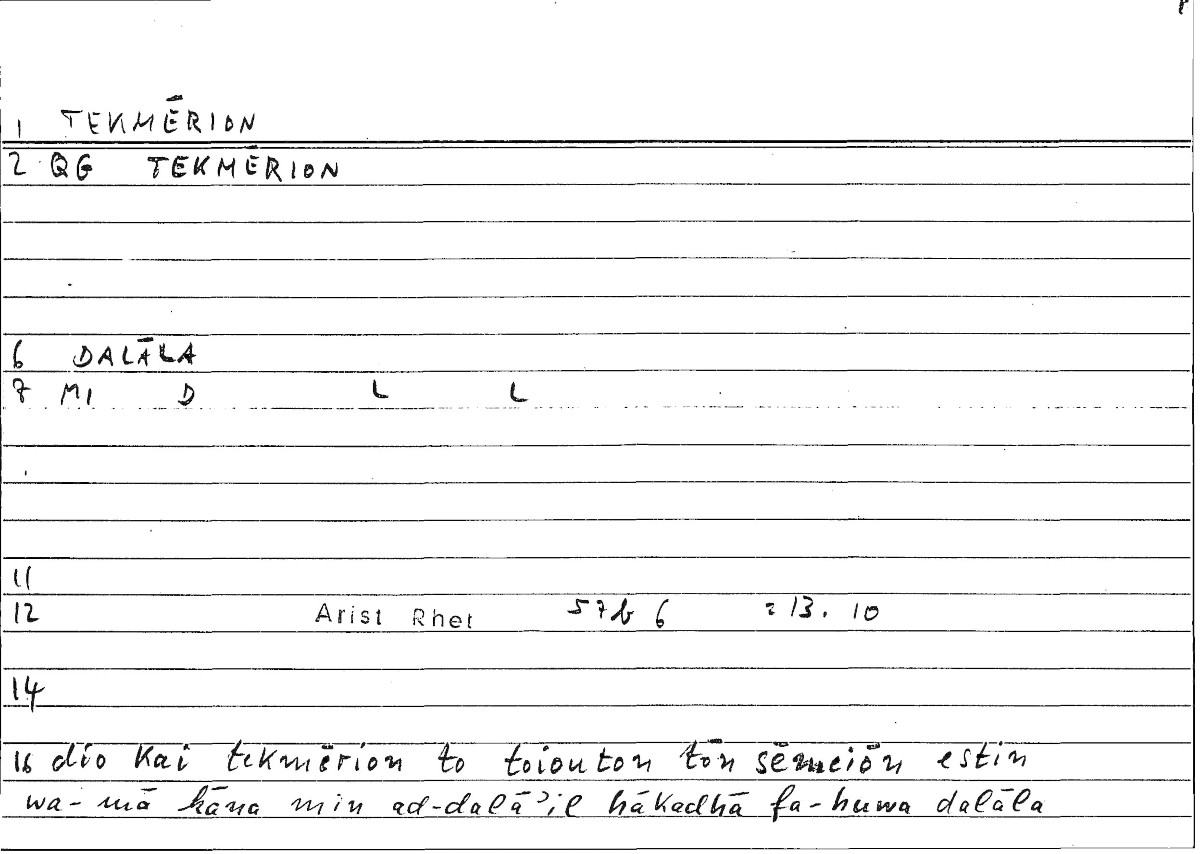 1 TEKMĒRION
2 QG TEKMĒRION
6 DALĀLA
7 MI D L L
11
12 Arist Rhet 57b 6 = 13. 10
14
16 dio kai tekmērion to toiouton tōn sēmeiōn estin
wa-mā kāna min ad-dalāʾil hākadhā fa-huwa dalāla